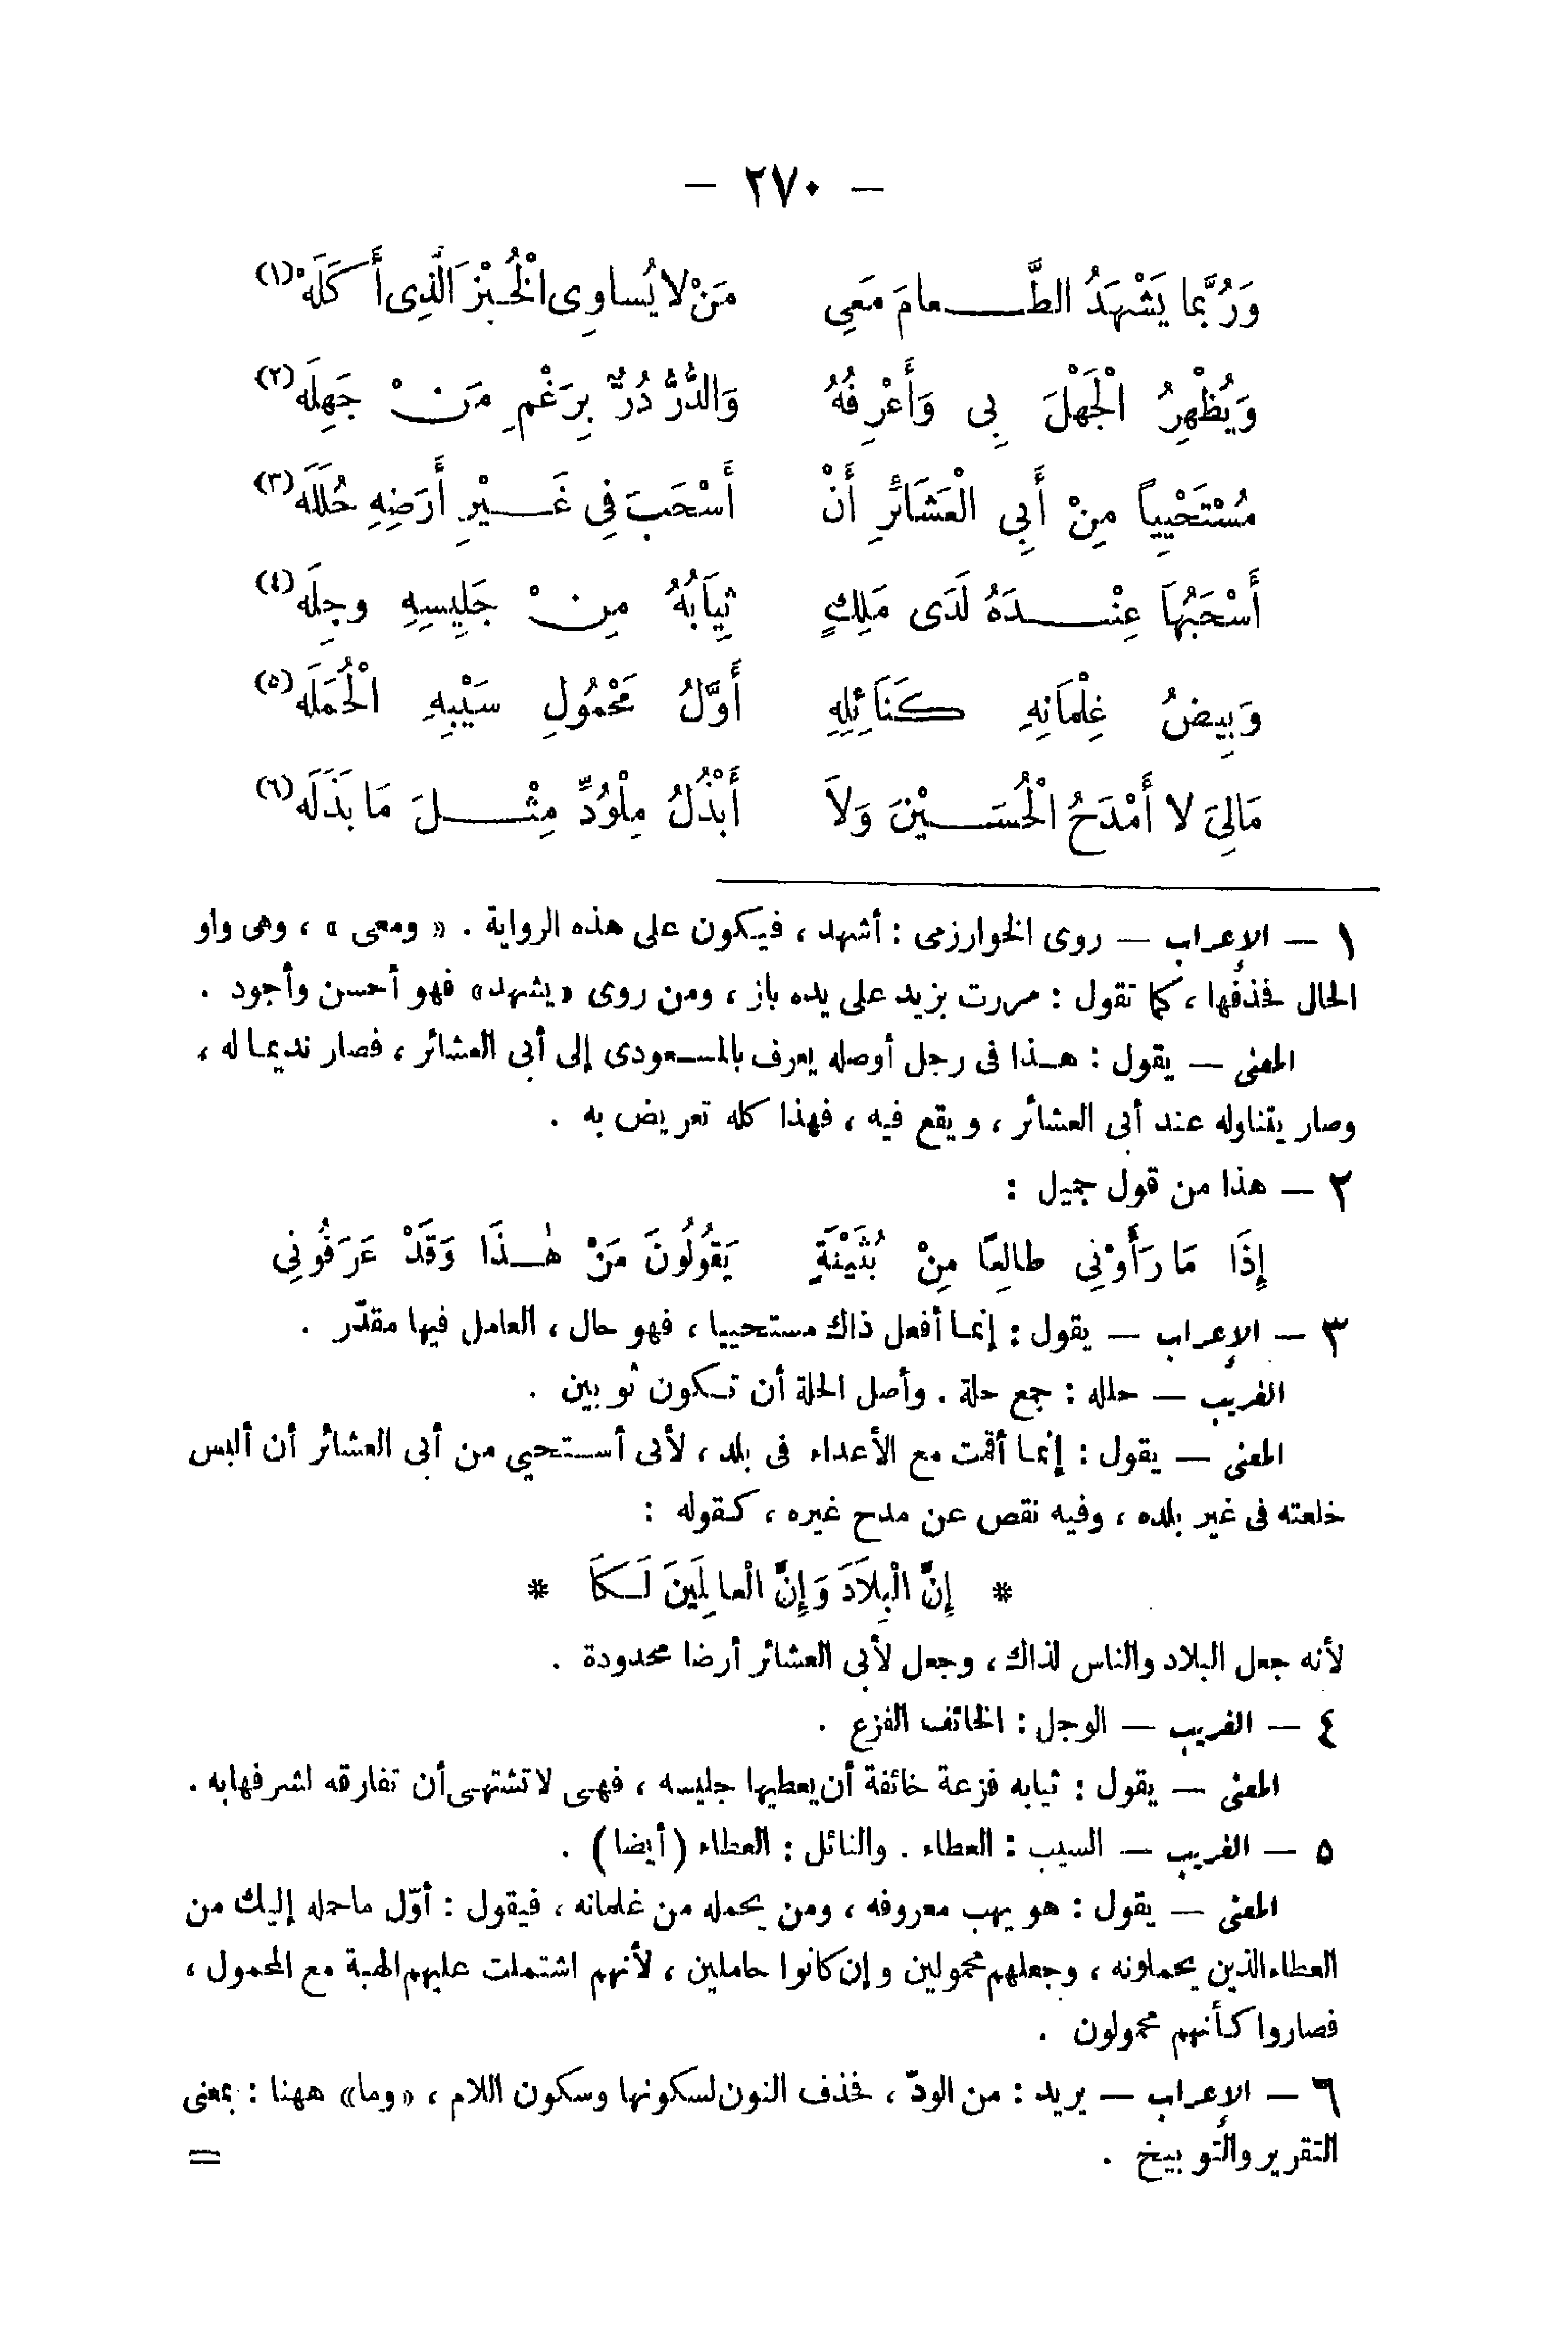 — ٢٧٠ —
وَرُبَّما يَشْهَدُ الطَّعامَ مَعِى مَنْ لا يُساوِى الْخُبْزَ الَّذِى أَكَلَهْ(١)
وَيُظْهِرُ الْجَهْلَ بِى وَأَعْرِفُهُ وَالدُّرُّ دُرٌّ بِرَغْمِ مَنْ جَهِلَه(٢)
مُسْتَحْيِياً مِنْ أَبِى الْعَشَائِرِ أَنْ أَسْحَبَ فِى غَيْرِ أَرضِهِ حُلَلَه(٣)
أَسْحَبُهَا عِنْدَهُ لَدَى مَلِكٍ ثِيَابُهُ مِنْ جَلِيسِهِ وجِلَه(٤)
وَبِيضُ غِلْمَانِهِ كَنَائِلِهِ أَوَّلُ مَحْمُولِ سَيْبِهِ الْحُمَلَه(٥)
مَالِىَ لا أَمْدَحُ الْحُسَيْنَ وَلاَ أَبْذُلُ مِلْوُدِّ مِثْلَ مَا بَذَلَه(٦)
١ — الإعراب — روى الخوارزمى : أشهد ، فيكون على هذه الرواية . « ومعى » ، وهى واو
الحال فحذفها ، كما تقول : مررت بزيد على يده باز ، ومن روى «يشهد» فهو أحسن وأجود .
المعنى — يقول : هذا فى رجل أوصله يعرف بالمسعودى إلى أبى العشائر ، فصار نديما له ،
وصار يتناوله عند أبى العشائر ، ويقع فيه ، فهذا كله تعريض به .
٢ — هذا من قول جميل :
إِذَا مَا رَأَوْنِى طالِعًا مِنْ بُثَيْنَةٍ يَقُولُونَ مَنْ هٰذَا وَقَدْ عَرَفُونِى
٣ — الإعراب — يقول : إنما أفعل ذاك مستحييا ، فهو حال ، العامل فيها مقدّر .
الغريب — حلله : جمع حلة . وأصل الحلة أن تكون ثوبين .
المعنى — يقول : إنما أقمت مع الأعداء فى بلد ، لأنى أستحيي من أبى العشائر أن ألبس
خلعته فى غير بلده ، وفيه نقص عن مدح غيره ، كقوله :
* إِنَّ الْبِلاَدَ وَإِنَّ الْعالَمِينَ لَكَا *
لأنه جعل البلاد والناس لذاك ، وجعل لأبى العشائر أرضا محدودة .
٤ — الغريب — الوجل : الخائف الفزع .
المعنى — يقول : ثيابه فزعة خائفة أن يعطيها جليسه ، فهى لا تشتهى أن تفارقه لشرفها به .
٥ — الغريب — السيب : العطاء . والنائل : العطاء (أيضا) .
المعنى — يقول : هو يهب معروفه ، ومن يحمله من غلمانه ، فيقول : أوّل ما حمله إليك من
العطاء الذين يحملونه ، وجعلهم محمولين وإن كانوا حاملين ، لأنهم اشتملت عليهم الهبة مع المحمول ،
فصاروا كأنهم محمولون .
٦ — الإعراب — يريد : من الودّ ، فحذف النون لسكونها وسكون اللام ، «وما» ههنا : بمعنى
التقرير والتوبيخ . =